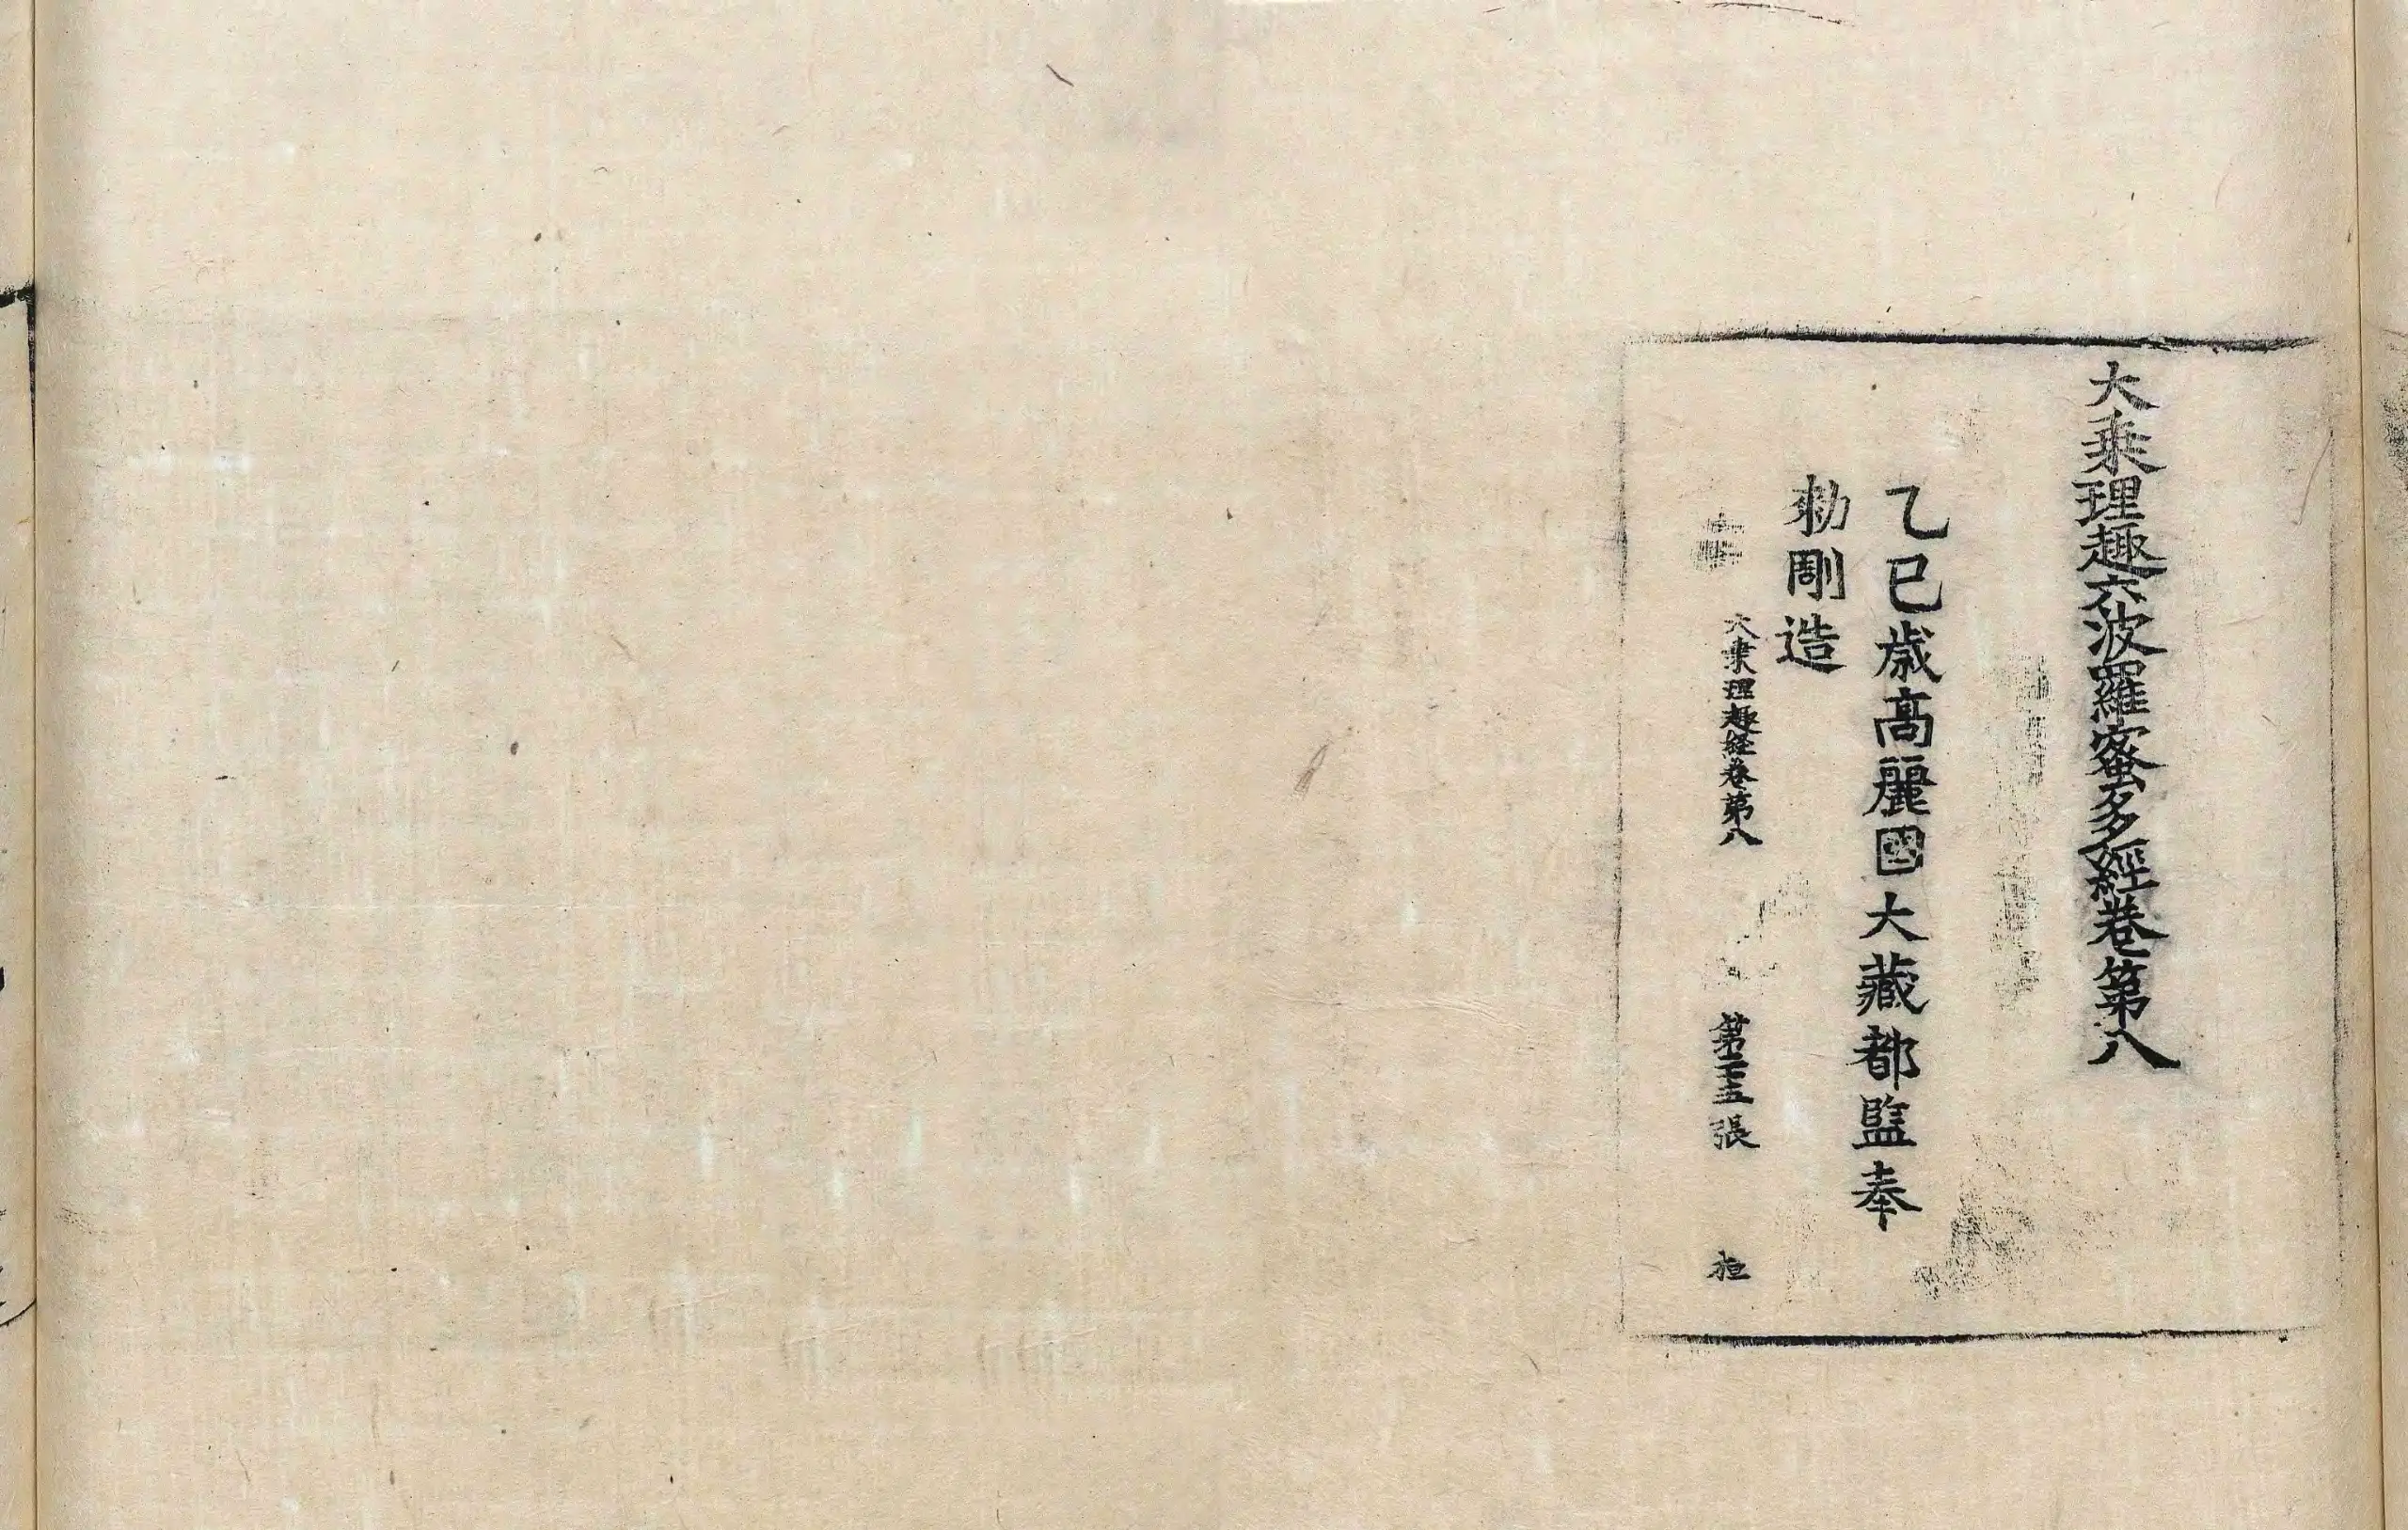 大乘理趣六波羅蜜多經卷第八
乙巳歲高麗國大藏都監奉
勅㓮造
大乘理趣経卷第八 第二十五張 桓